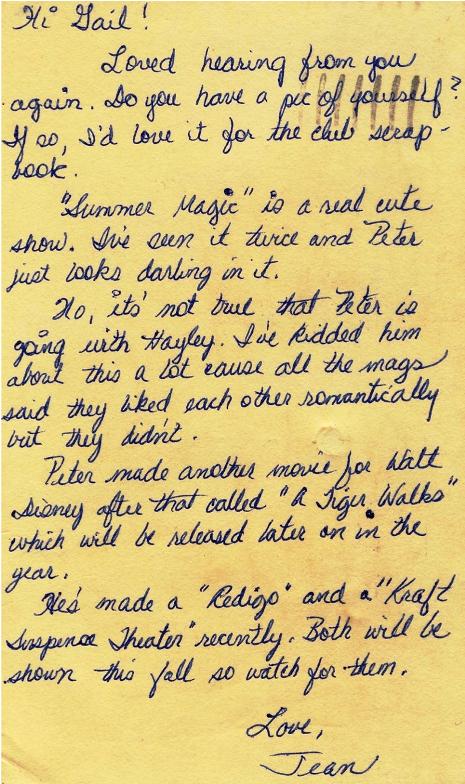 Hi Gail!
Loved hearing from you
again. Do you have a pic of yourself?
If so, I'd love it for the club scrap-
book.
"Summer Magic" is a real cute
show. I've seen it twice and Peter
just looks darling in it.
No, it's not true that Peter is
going with Hayley. I've kidded him
about this a lot cause all the mags
said they liked each other romantically
but they didn't.
Peter made another movie for Walt
Disney after that called "A Tiger Walks"
which will be released later on in the
year.
He's made a "Redigo" and a "Kraft
Suspence Theater" recently. Both will be
shown this fall so watch for them.
Love,
Jean